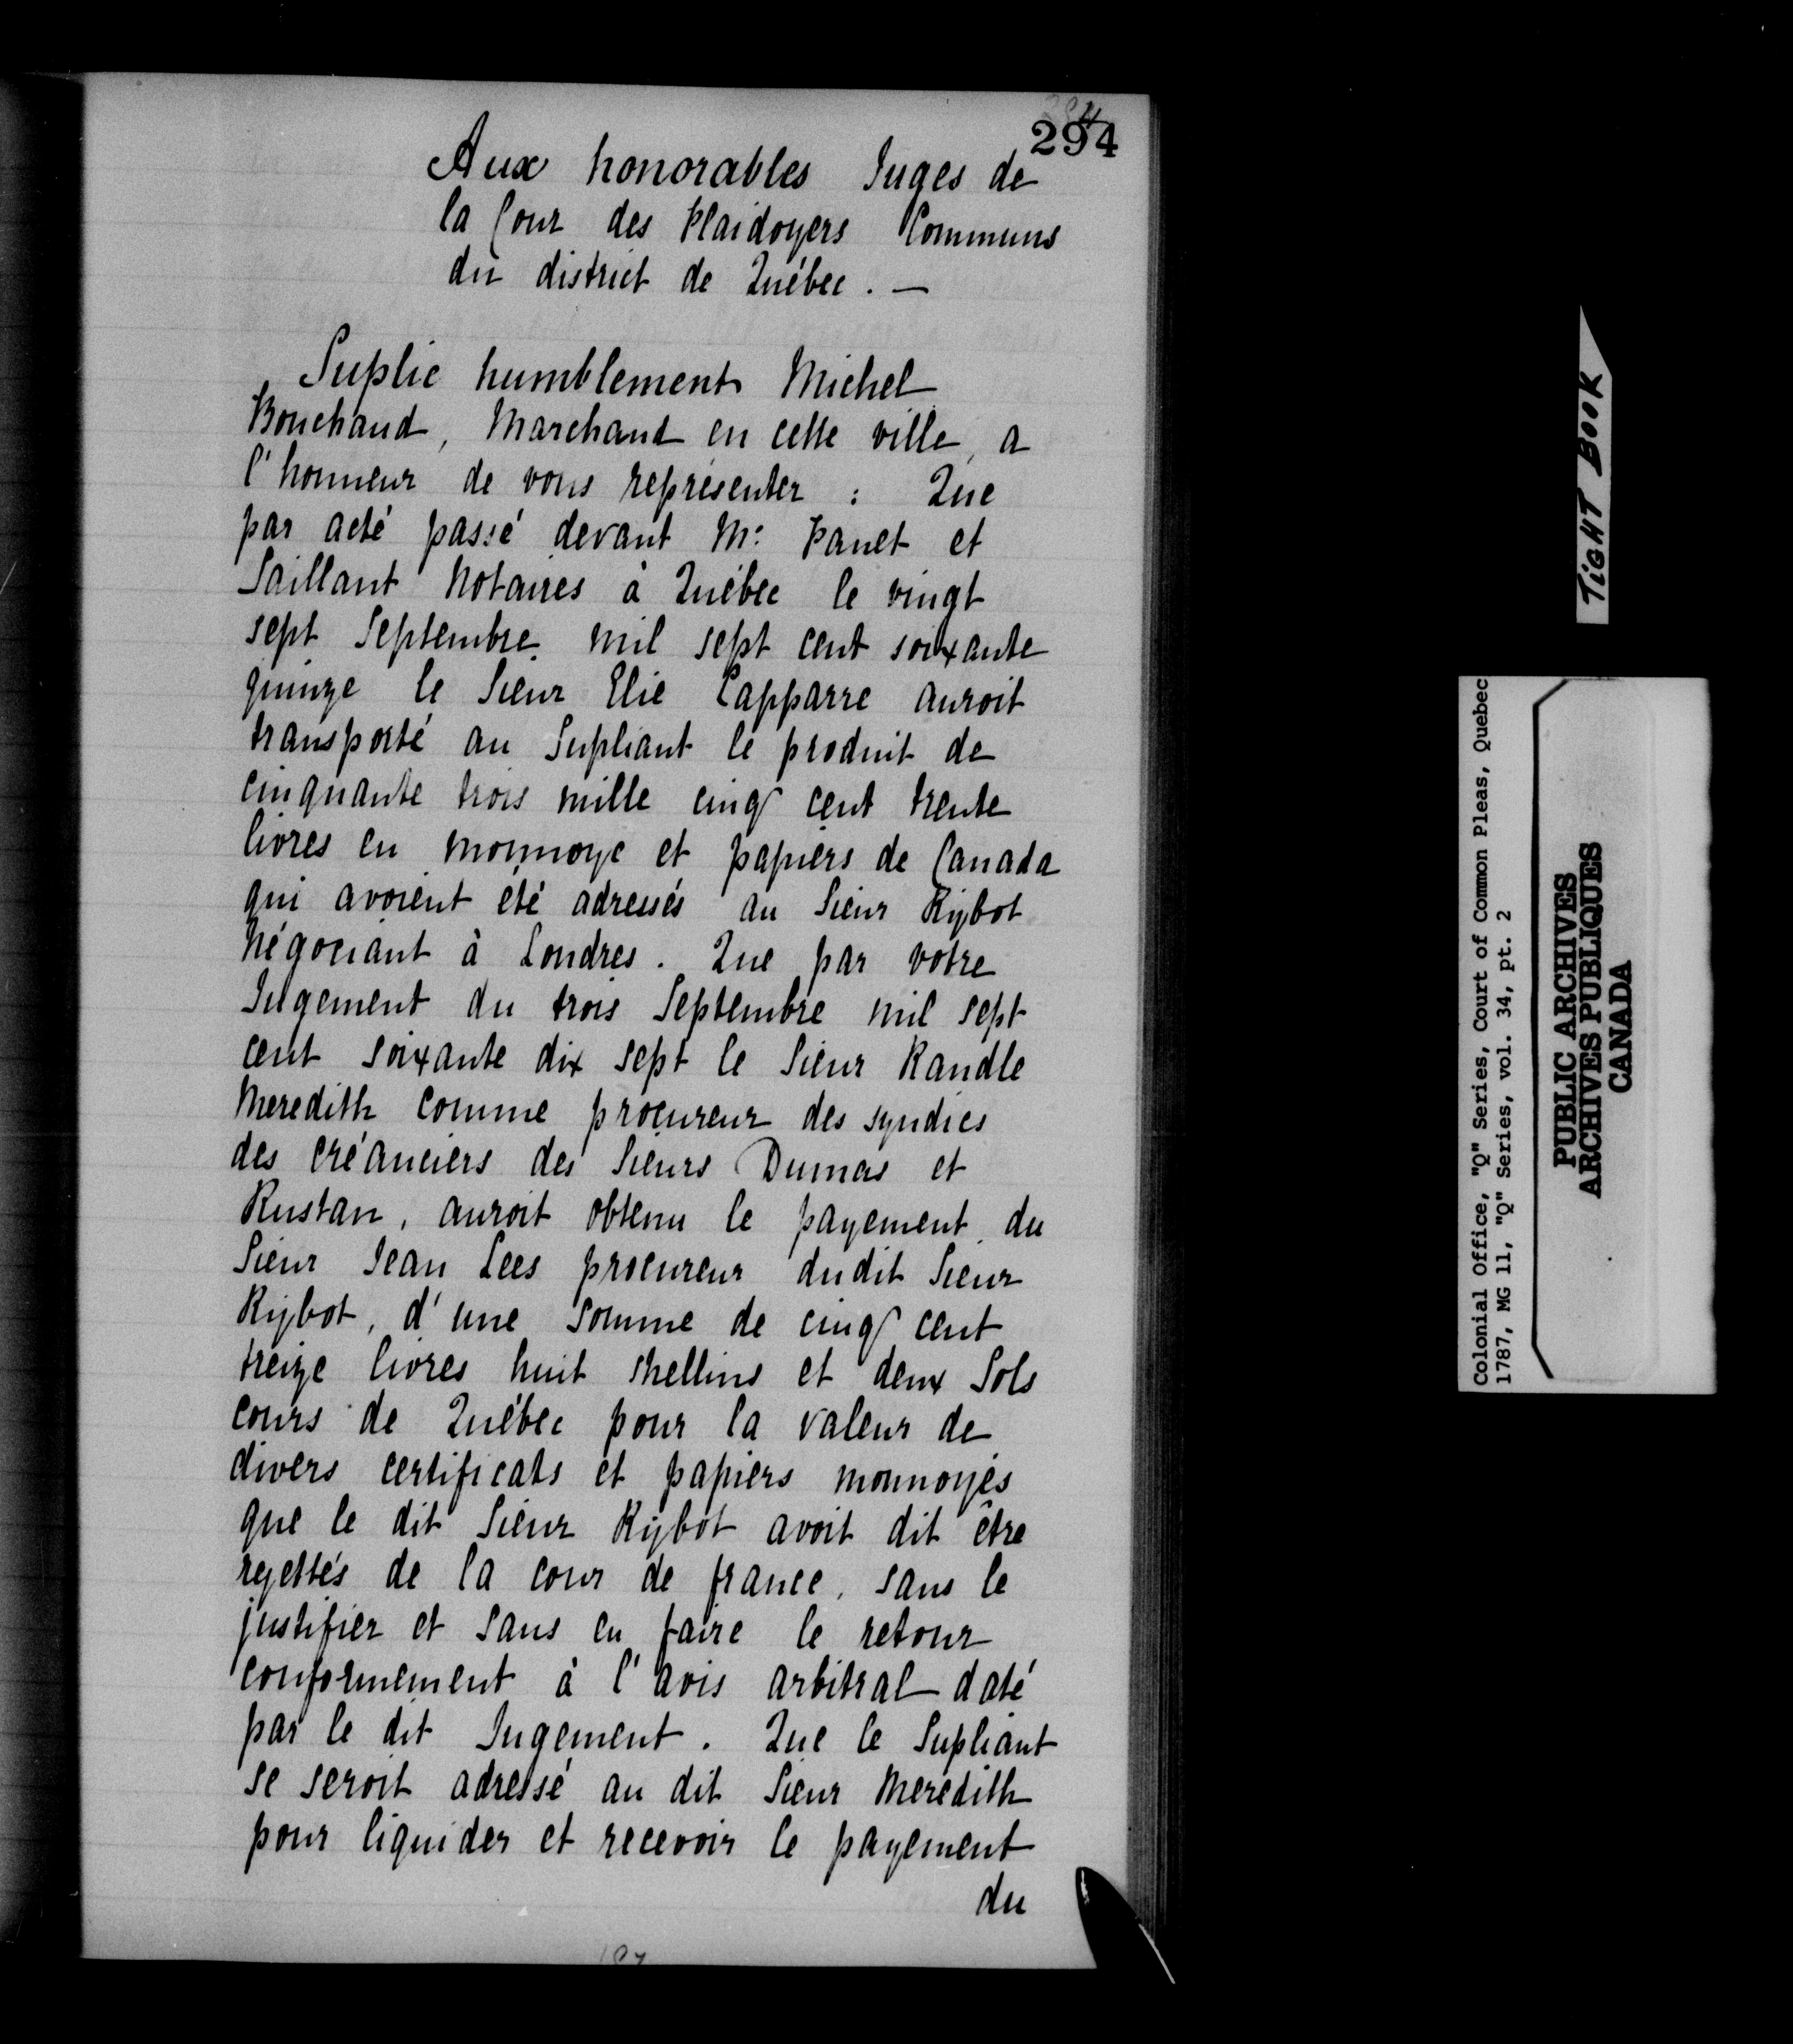 294
Aux honorables Juges de
la Cour des Plaidoyers Communs
du district de Québec. —
Suplie humblement Michel
Bouchaud, Marchand en cette ville, a
l'honneur de vous représenter : Que
par acté passé devant Mc. Panet et
Saillant Notaires à Québec le vingt
sept Septembre mil sept cent soixante
quinze le Sieur Elie Lapparre auroit
transporté au Supliant le produit de
cinquante trois mille cinq cent trente
livres en monnoye et papiers de Canada
qui avoient été adressés au Sieur Rybot
Négociant à Londres. Que par votre
Jugement du trois Septembre mil sept
cent soixante dix sept le Sieur Randle
Meredith comme procureur des syndics
des créanciers des Sieurs Dumas et
Rustan, auroit obtenu le payement, du
Sieur Jean Lees procureur dudit Sieur
Rybot, d'une somme de cinq cent
treize livres huit shellins et deux Sols
cours de Québec pour la valeur de
divers certificats et papiers monnoyés
que le dit Sieur Rybot avoit dit être
rejettés de la cour de france, sans le
justifier et sans en faire le retour
conformement à l'avis arbitral daté
par le dit Jugement. Que le Supliant
se seroit adressé au dit Sieur Meredith
pour liquider et recevoir le payement
du
TIGHT BOOK
Colonial Office, "Q" Series, Court of Common Pleas, Quebec
1787, MG 11, "Q" Series, vol. 34, pt. 2
PUBLIC ARCHIVES
ARCHIVES PUBLIQUES
CANADA